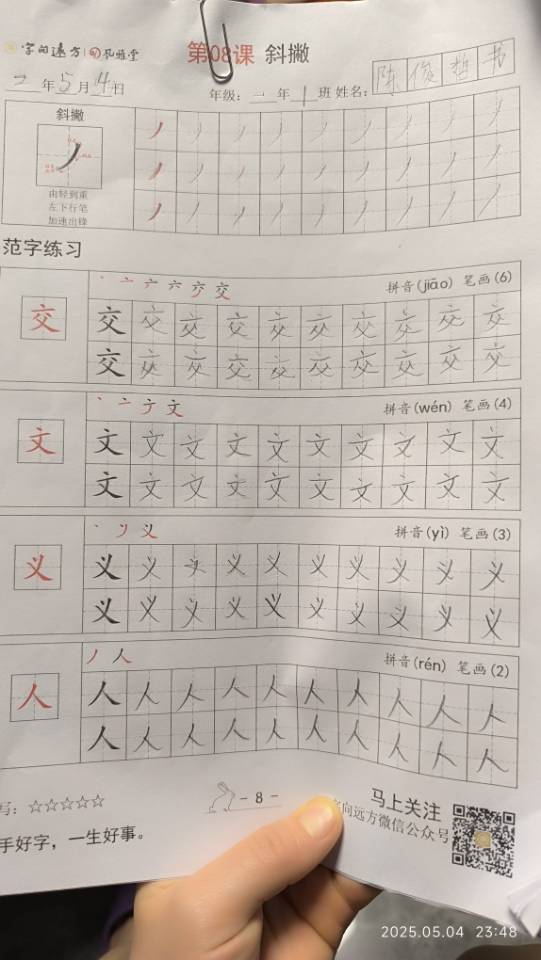 字向远方 孔雅堂
第08课 斜撇
二 年 5 月 4 日 年级：一年 1 班 姓名：陈俊哲书
斜撇
由轻到重
左下行笔
加速出锋
范字练习
拼音(jiāo) 笔画(6)
交 交 交 交 交 交 交 交 交 交 交
交 交 交 交 交 交 交 交 交 交
拼音(wén) 笔画(4)
文 文 文 文 文 文 文 文 文 文 文
文 文 文 文 文 文 文 文 文 文
拼音(yì) 笔画(3)
义 义 义 义 义 义 义 义 义 义 义
义 义 义 义 义 义 义 义 义 义
拼音(rén) 笔画(2)
人 人 人 人 人 人 人 人 人 人 人
人 人 人 人 人 人 人 人 人 人
写：☆☆☆☆☆
- 8 -
手好字，一生好事。
马上关注
字向远方微信公众号
2025.05.04 23:48